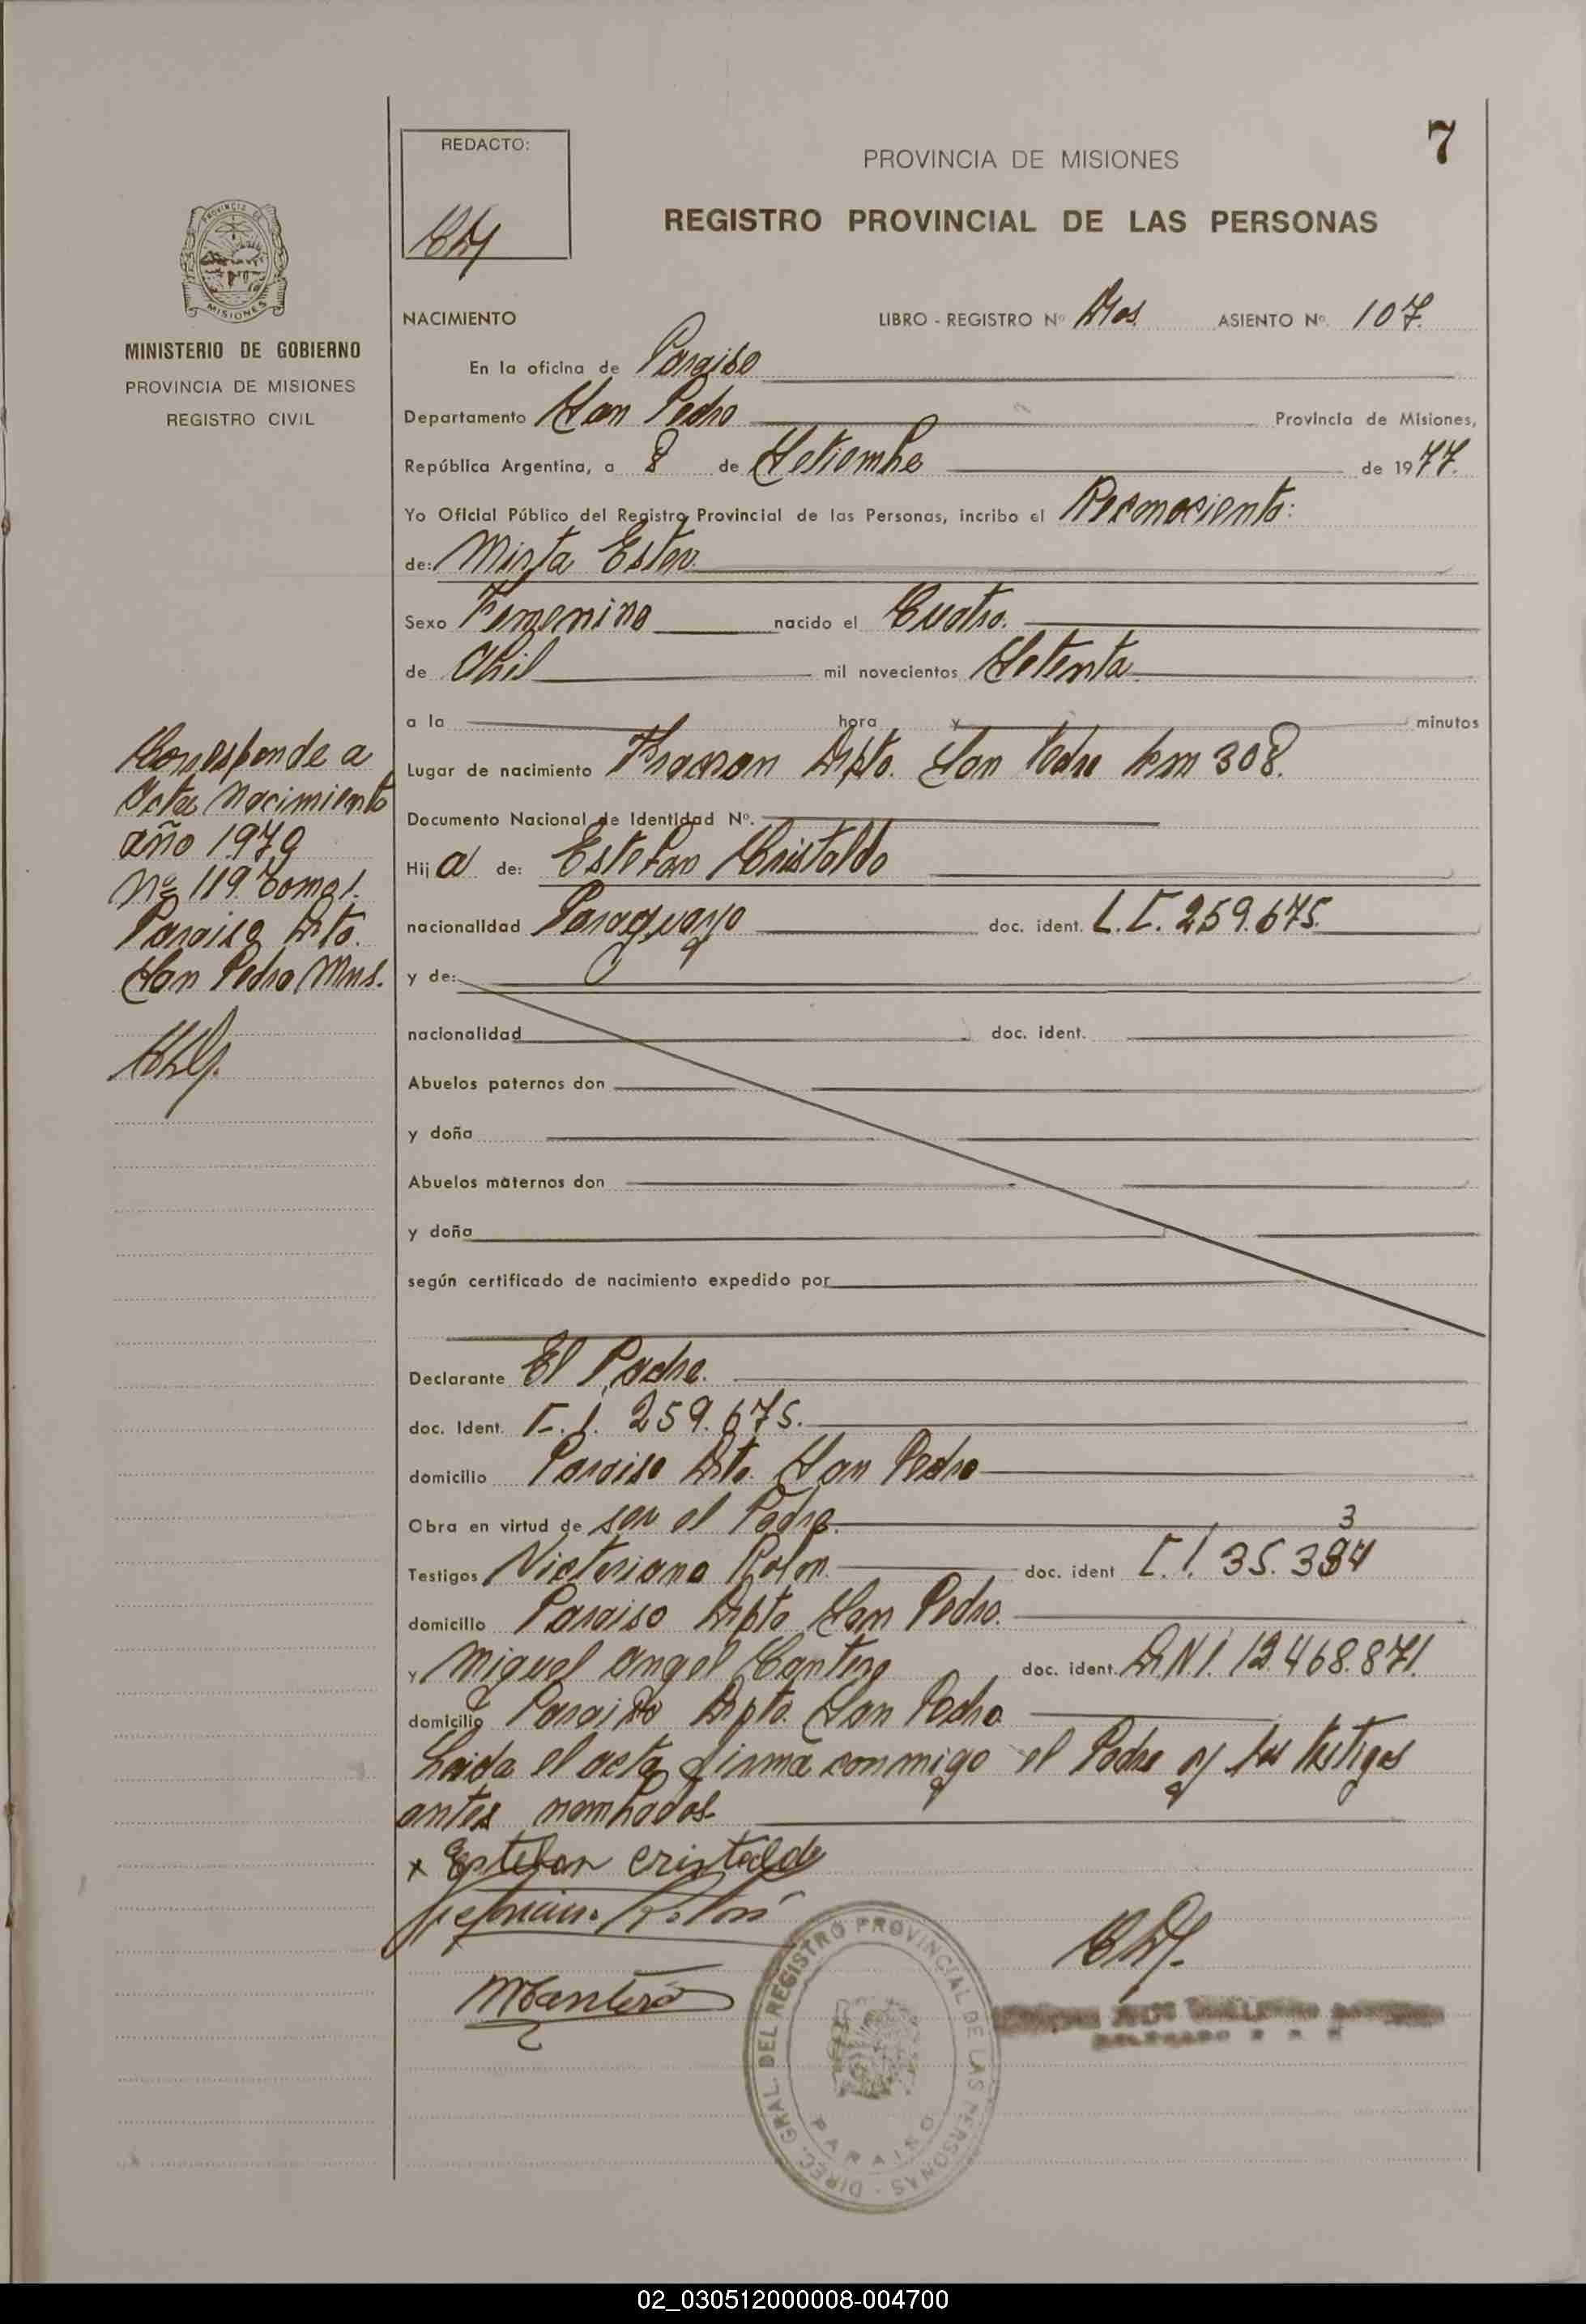 7
REDACTO:
PROVINCIA DE MISIONES
REGISTRO PROVINCIAL DE LAS PERSONAS
PROVINCIA DE
MISIONES
MINISTERIO DE GOBIERNO
PROVINCIA DE MISIONES
REGISTRO CIVIL
NACIMIENTO LIBRO - REGISTRO Nº Dos. ASIENTO Nº. 107.
En la oficina de Paraiso
Departamento San Pedro Provincia de Misiones,
República Argentina, a 8 de Setiembre de 1977.
Yo Oficial Público del Registro Provincial de las Personas, incribo el Reconociento:
de: Mirta Ester.
Sexo Femenino nacido el Cuatro.
de Abril mil novecientos Setenta
a la hora y minutos
Lugar de nacimiento Dpto. San Pedro km 308.
Documento Nacional de Identidad Nº.
Hija de: Esteban Cristaldo
nacionalidad Paraguayo doc. ident. 259.675.
y de:
nacionalidad doc. ident.
Abuelos paternos don
y doña
Abuelos maternos don
y doña
según certificado de nacimiento expedido por
Declarante El Padre.
doc. Ident. C.I. 259.675.
domicilio Paraiso Dto. San Pedro
Obra en virtud de ser el Padre.
3
Testigos Victoriano Rolon. doc. ident C.I. 35.384
domicilio Paraiso Dpto San Pedro.
y Miguel Angel Cantero doc. ident. DNI. 12.468.871.
domicilio Paraiso Dpto. San Pedro
Leida el acta firma conmigo el Padre y los testigos
antes nombrados.
x Esteban cristaldo
MCantero
Corresponde a
Acta Nacimiento
año 1970
Nº 119. Tomo 1.
Paraiso Dto.
San Pedro Mns.
DIREC. GRAL. DEL REGISTRO PROVINCIAL DE LAS PERSONAS
PARAISO
02_030512000008-004700